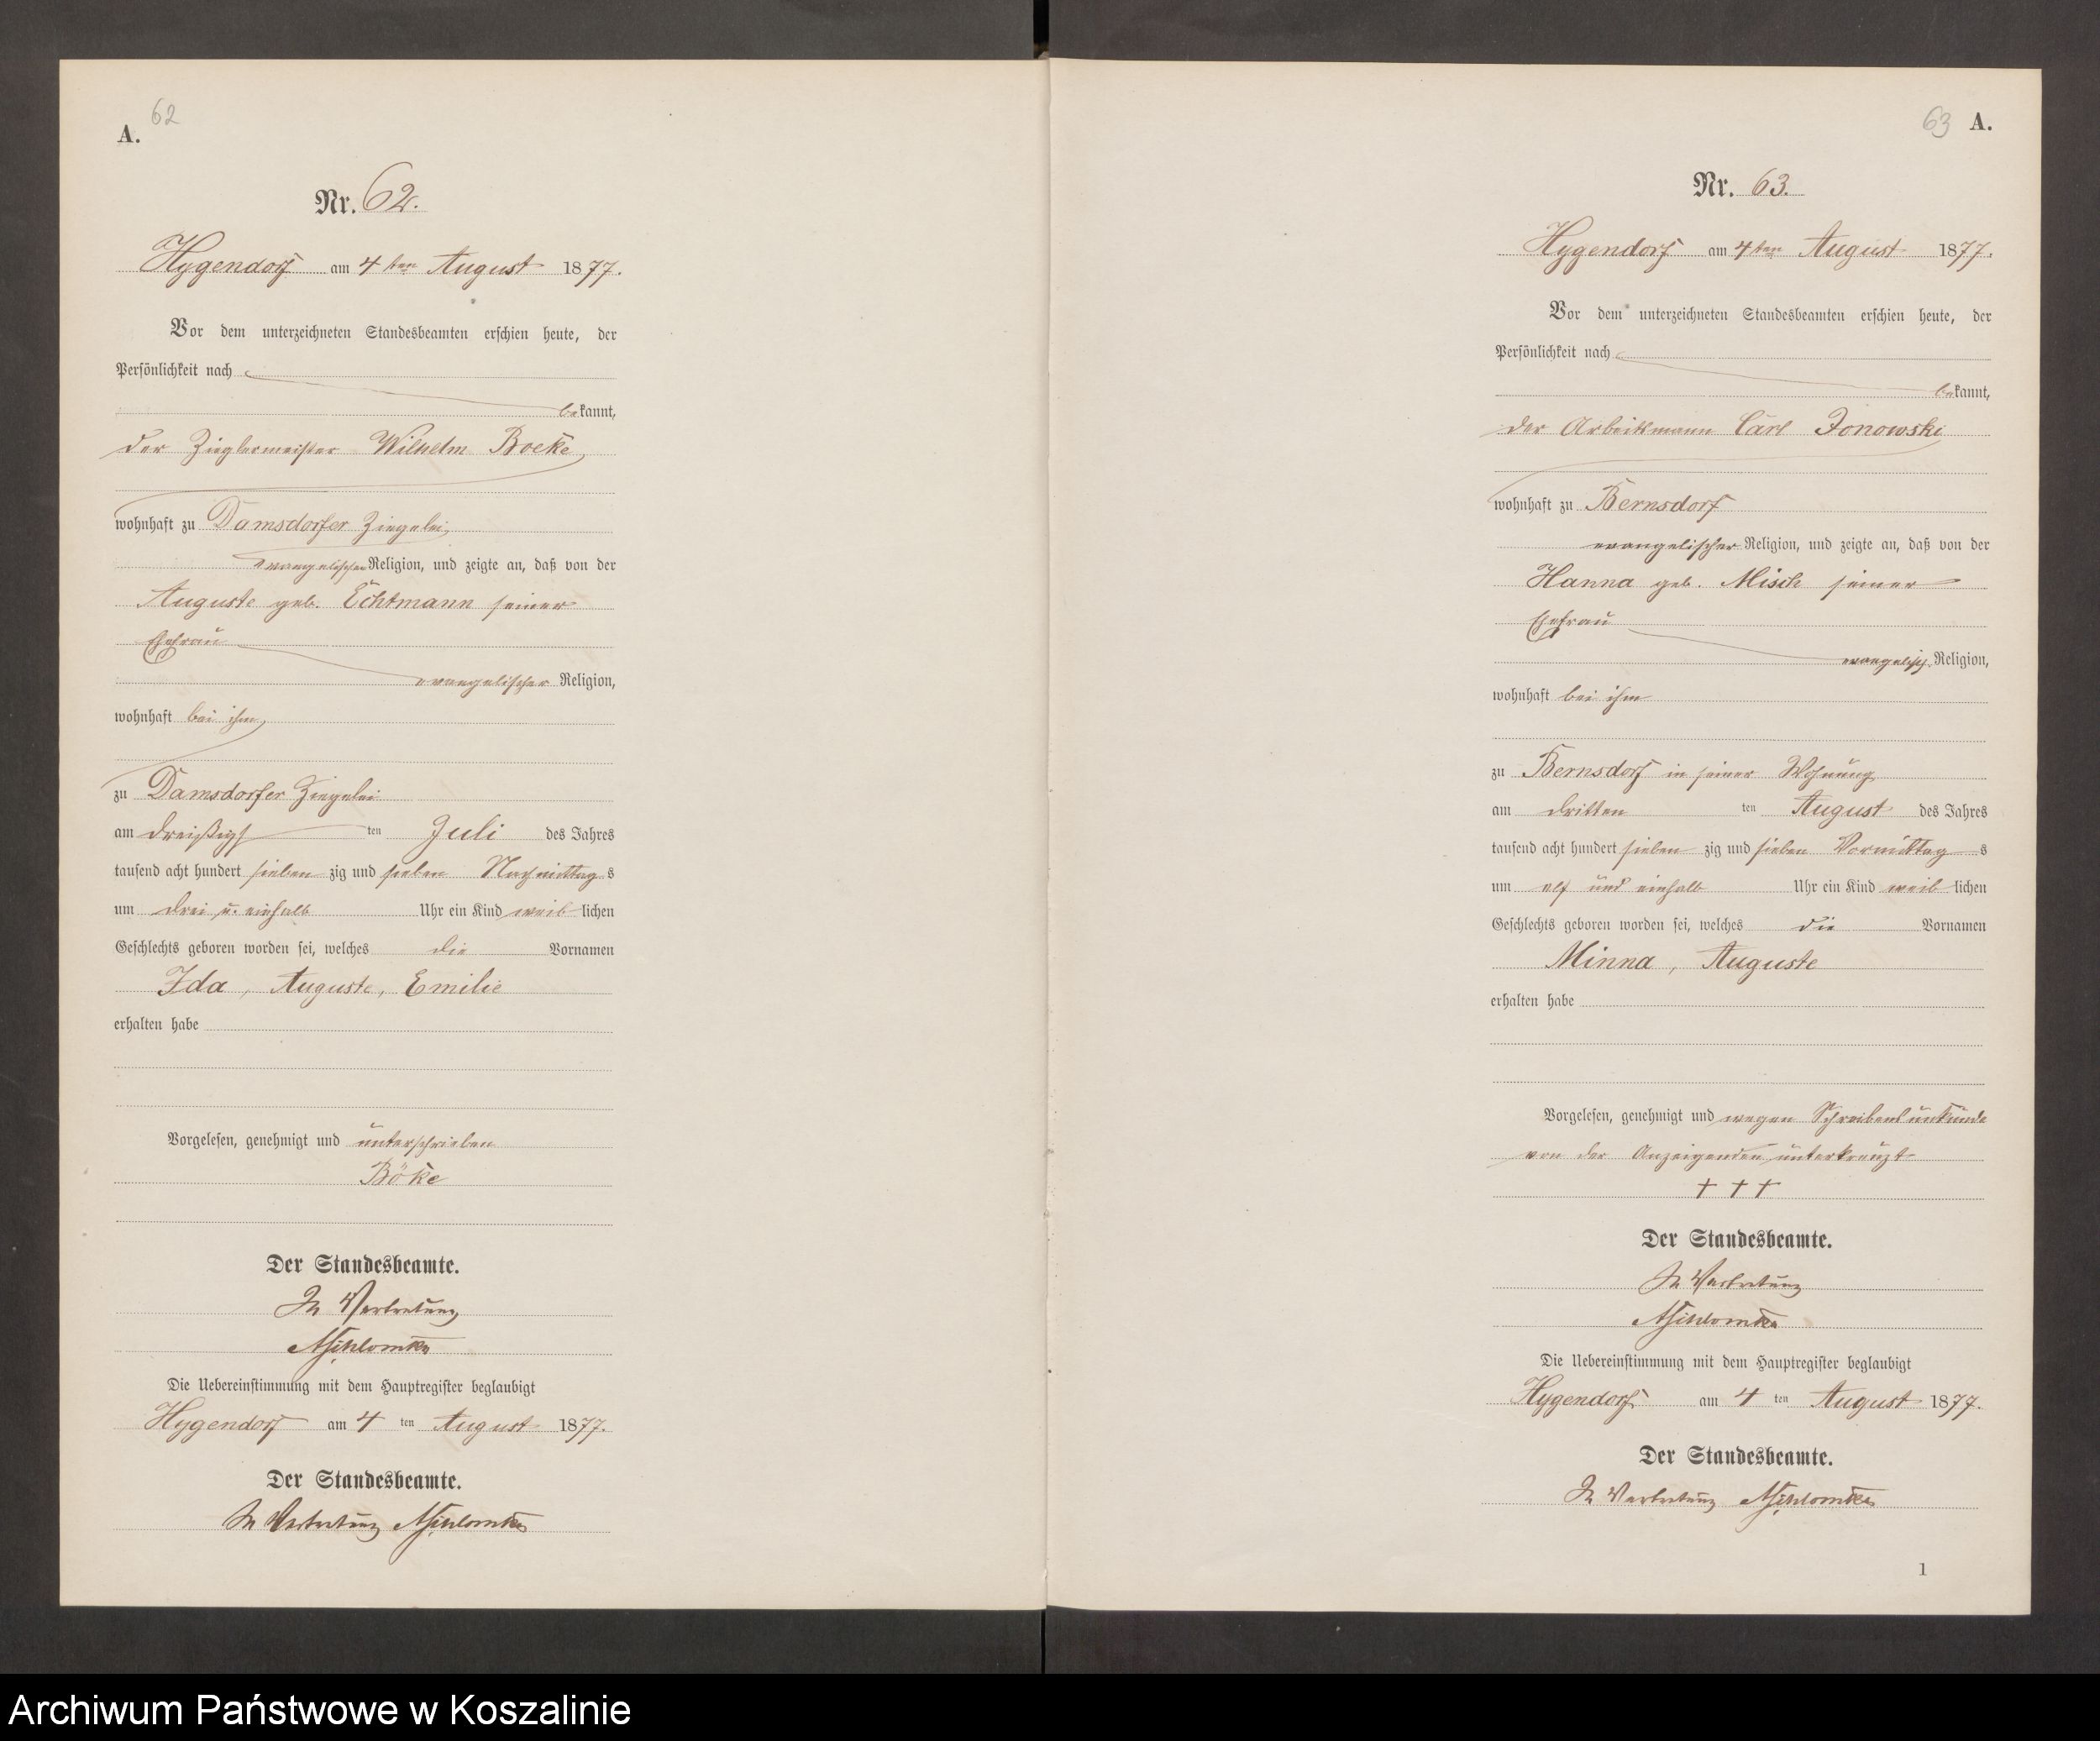 62
A.
Nr. 62.
Hygendorf am 4ten August 1877.
Vor dem unterzeichneten Standesbeamten erschien heute, der
Persönlichkeit nach
bekannt,
der Zieglermeister Wilhelm Boeke
wohnhaft zu Damsdorfer Ziegelei
evangelischer Religion, und zeigte an, daß von der
Auguste geb. Echtmann seiner
Ehefrau
evangelischer Religion,
wohnhaft bei ihm
zu Damsdorfer Ziegelei
am dreißigs ten Juli des Jahres
tausend acht hundert sieben zig und sieben Nachmittag s
um drei u. einhalb Uhr ein Kind weib lichen
Geschlechts geboren worden sei, welches die Vornamen
Ida, Auguste, Emilie
erhalten habe
Vorgelesen, genehmigt und unterschrieben
Böke
Der Standesbeamte.
In Vertretung
Die Uebereinstimmung mit dem Hauptregister beglaubigt
Hygendorf am 4 ten August 1877.
Der Standesbeamte.
In Vertretung
63 A.
Nr. 63.
Hygendorf am 4ten August 1877.
Vor dem unterzeichneten Standesbeamten erschien heute, der
Persönlichkeit nach
bekannt,
der Arbeitsmann Carl Jonowski
wohnhaft zu Bernsdorf
evangelischer Religion, und zeigte an, daß von der
Hanna geb. Misch seiner
Ehefrau
evangelisch Religion,
wohnhaft bei ihm
zu Bernsdorf in seiner Wohnung
am dritten ten August des Jahres
tausend acht hundert sieben zig und sieben Vormittag s
um elf und einhalb Uhr ein Kind weib lichen
Geschlechts geboren worden sei, welches die Vornamen
Minna, Auguste
erhalten habe
Vorgelesen, genehmigt und wegen Schreibensunkunde
von der Anzeigenden unterkreuzt
+ + +
Der Standesbeamte.
In Vertretung
Die Uebereinstimmung mit dem Hauptregister beglaubigt
Hygendorf am 4 ten August 1877.
Der Standesbeamte.
In Vertretung
1
Archiwum Państwowe w Koszalinie